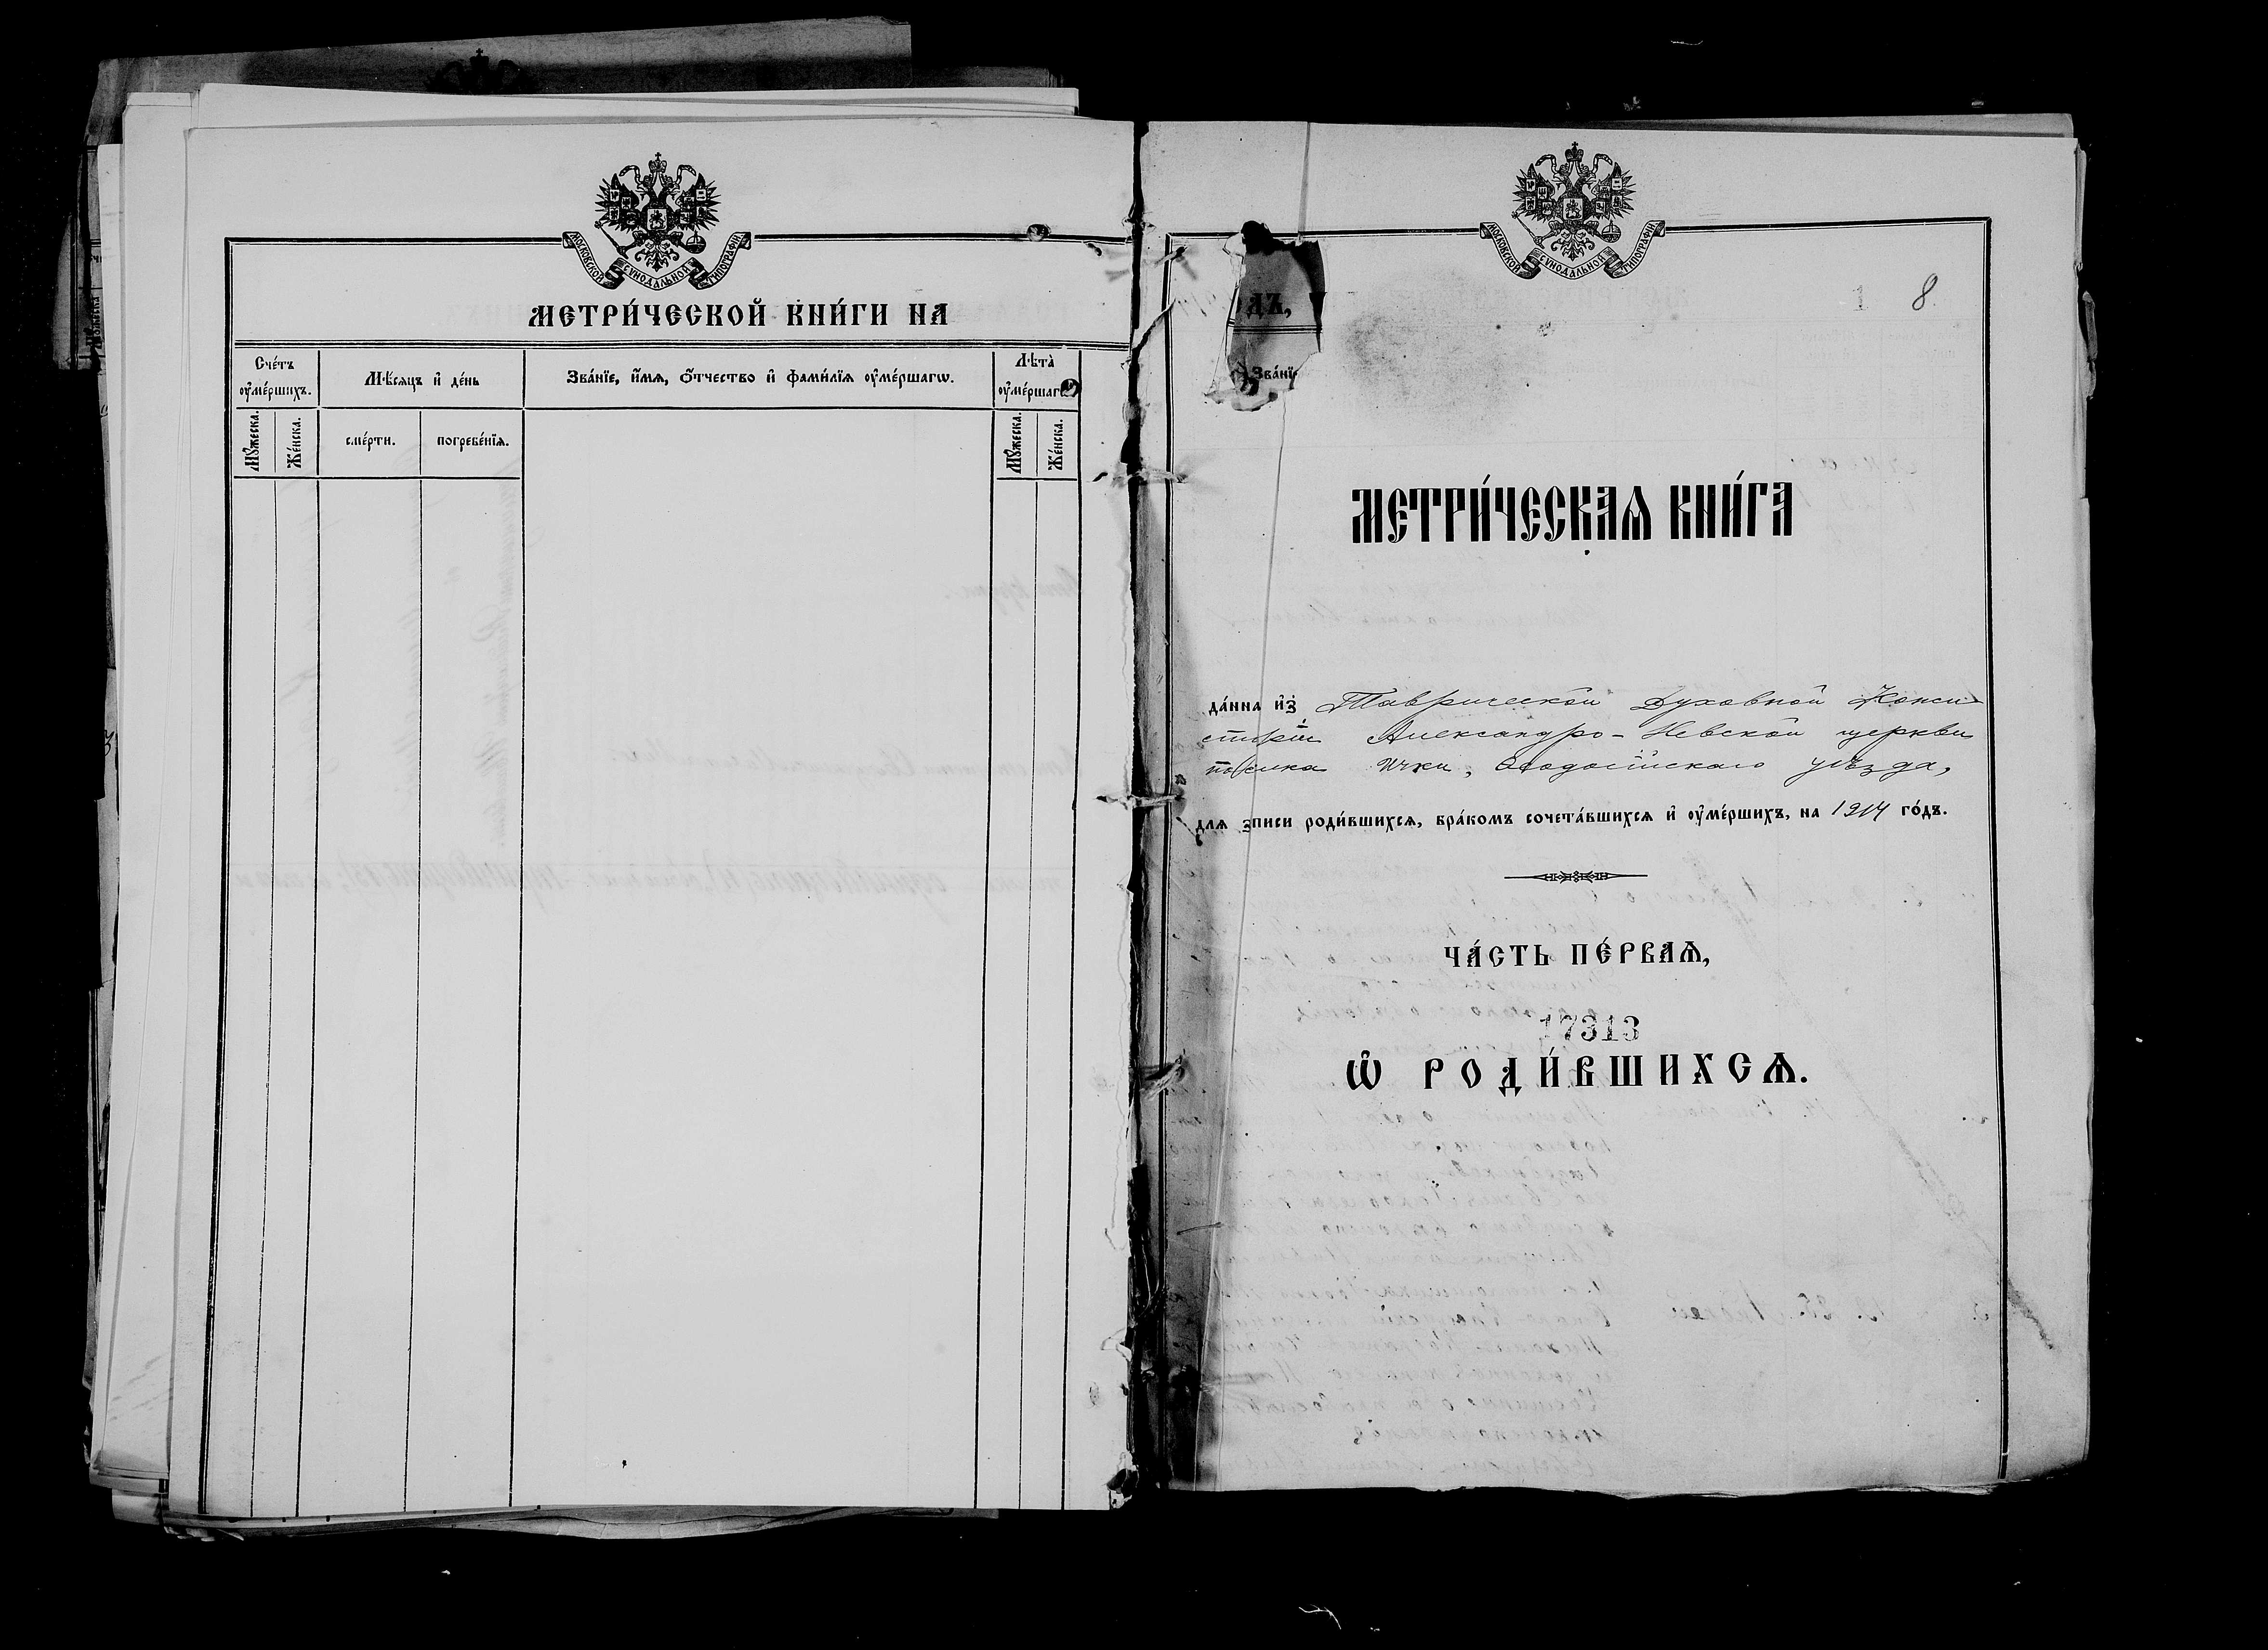 МОСКОВСКОЙ СѴНОДАЛЬНОЙ ТИПОГРАФІИ
МЕТРИ́ЧЕСКОЙ КНИ́ГИ НА
Сче́тъ ᲂу҆ме́ршихъ.
Мѣ́сяцъ и҆ де́нь
Зва́нїе, и҆́мѧ, ѻ҆́тчество и҆ фами́лїѧ ᲂу҆ме́ршагѡ.
Лѣ́та ᲂу҆ме́ршагѡ
Мꙋ́жеска.
Же́нска.
сме́рти.
погребе́нїѧ.
Мꙋ́жеска.
Же́нска.
МОСКОВСКОЙ СѴНОДАЛЬНОЙ ТИПОГРАФІИ
1 8
ДЪ,
Зва́нї
МЕТРИ́ЧЕСКАѦ КНИ́ГА
да́нна и҆з̾ Таврической Духовной Конси
сторіи Александро-Невской церкви
поселка Ички, Ѳеодосійскаго уѣзда,
длѧ зписи роди́вшихсѧ, бра́комъ сочета́вшихсѧ и҆ ᲂу҆ме́ршихъ, на 1914 го́дъ.
ЧА́СТЬ ПЕ́РВАѦ,
17313
Ѡ҆ РОДИ́ВШИХСѦ.